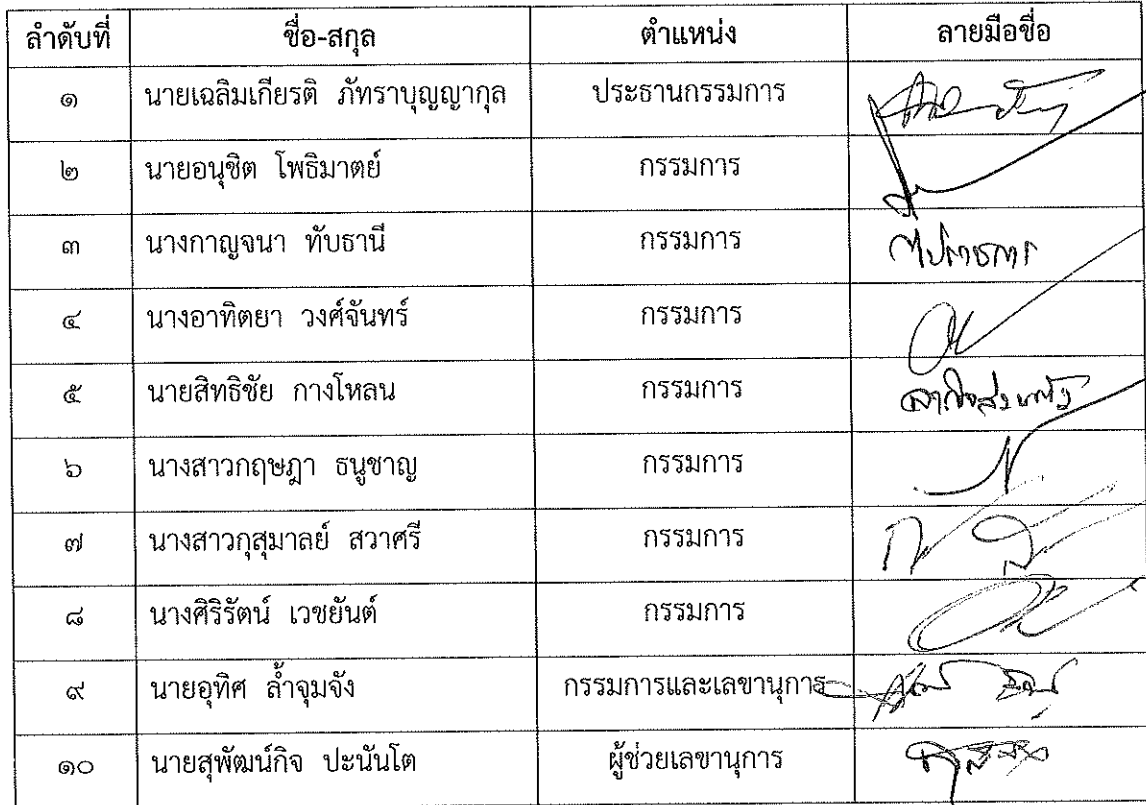 ลำดับที่ ชื่อ-สกุล ตำแหน่ง ลายมือชื่อ
๑ นายเฉลิมเกียรติ ภัทราบุญญากุล ประธานกรรมการ
๒ นายอนุชิต โพธิมาตย์ กรรมการ
๓ นางกาญจนา ทับธานี กรรมการ ไปราชการ
๔ นางอาทิตยา วงศ์จันทร์ กรรมการ
๕ นายสิทธิชัย กางโหลน กรรมการ
๖ นางสาวกฤษฎา ธนูชาญ กรรมการ
๗ นางสาวกุสุมาลย์ สวาศรี กรรมการ
๘ นางศิริรัตน์ เวชยันต์ กรรมการ
๙ นายอุทิศ ล้ำจุมจัง กรรมการและเลขานุการ
๑๐ นายสุพัฒน์กิจ ปะนันโต ผู้ช่วยเลขานุการ